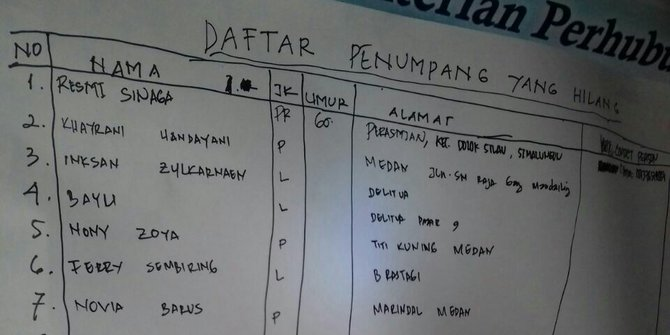 terian Perhubu
DAFTAR PENUMPANG YANG HILANG
NO NAMA JK UMUR ALAMAT
1. RESMI SINAGA PR 60. KEC. DOLOK SILAU, SIMALUNGU
2. KHAIRANI HANDAYANI P MEDAN JLN. SM RAJA Gang Mandailing
3. IHKSAN ZYLKARNAEN L DELITUA
4. BAYU L DELITUA PASAR 9
5. NONY ZOYA P TITI KUNING MEDAN
6. FERRY SEMBIRING L BRASTAGI
7. NOVIA BARUS P MARINDAL MEDAN